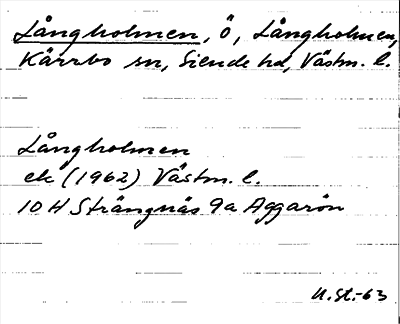 Långholmen, ö, Långholmen,
Kärrbo sn, Siende hd, Västm. l.
Långholmen
ek (1962) Västm. l.
10 H Strängnäs 9a Aggarön
U.St.-63